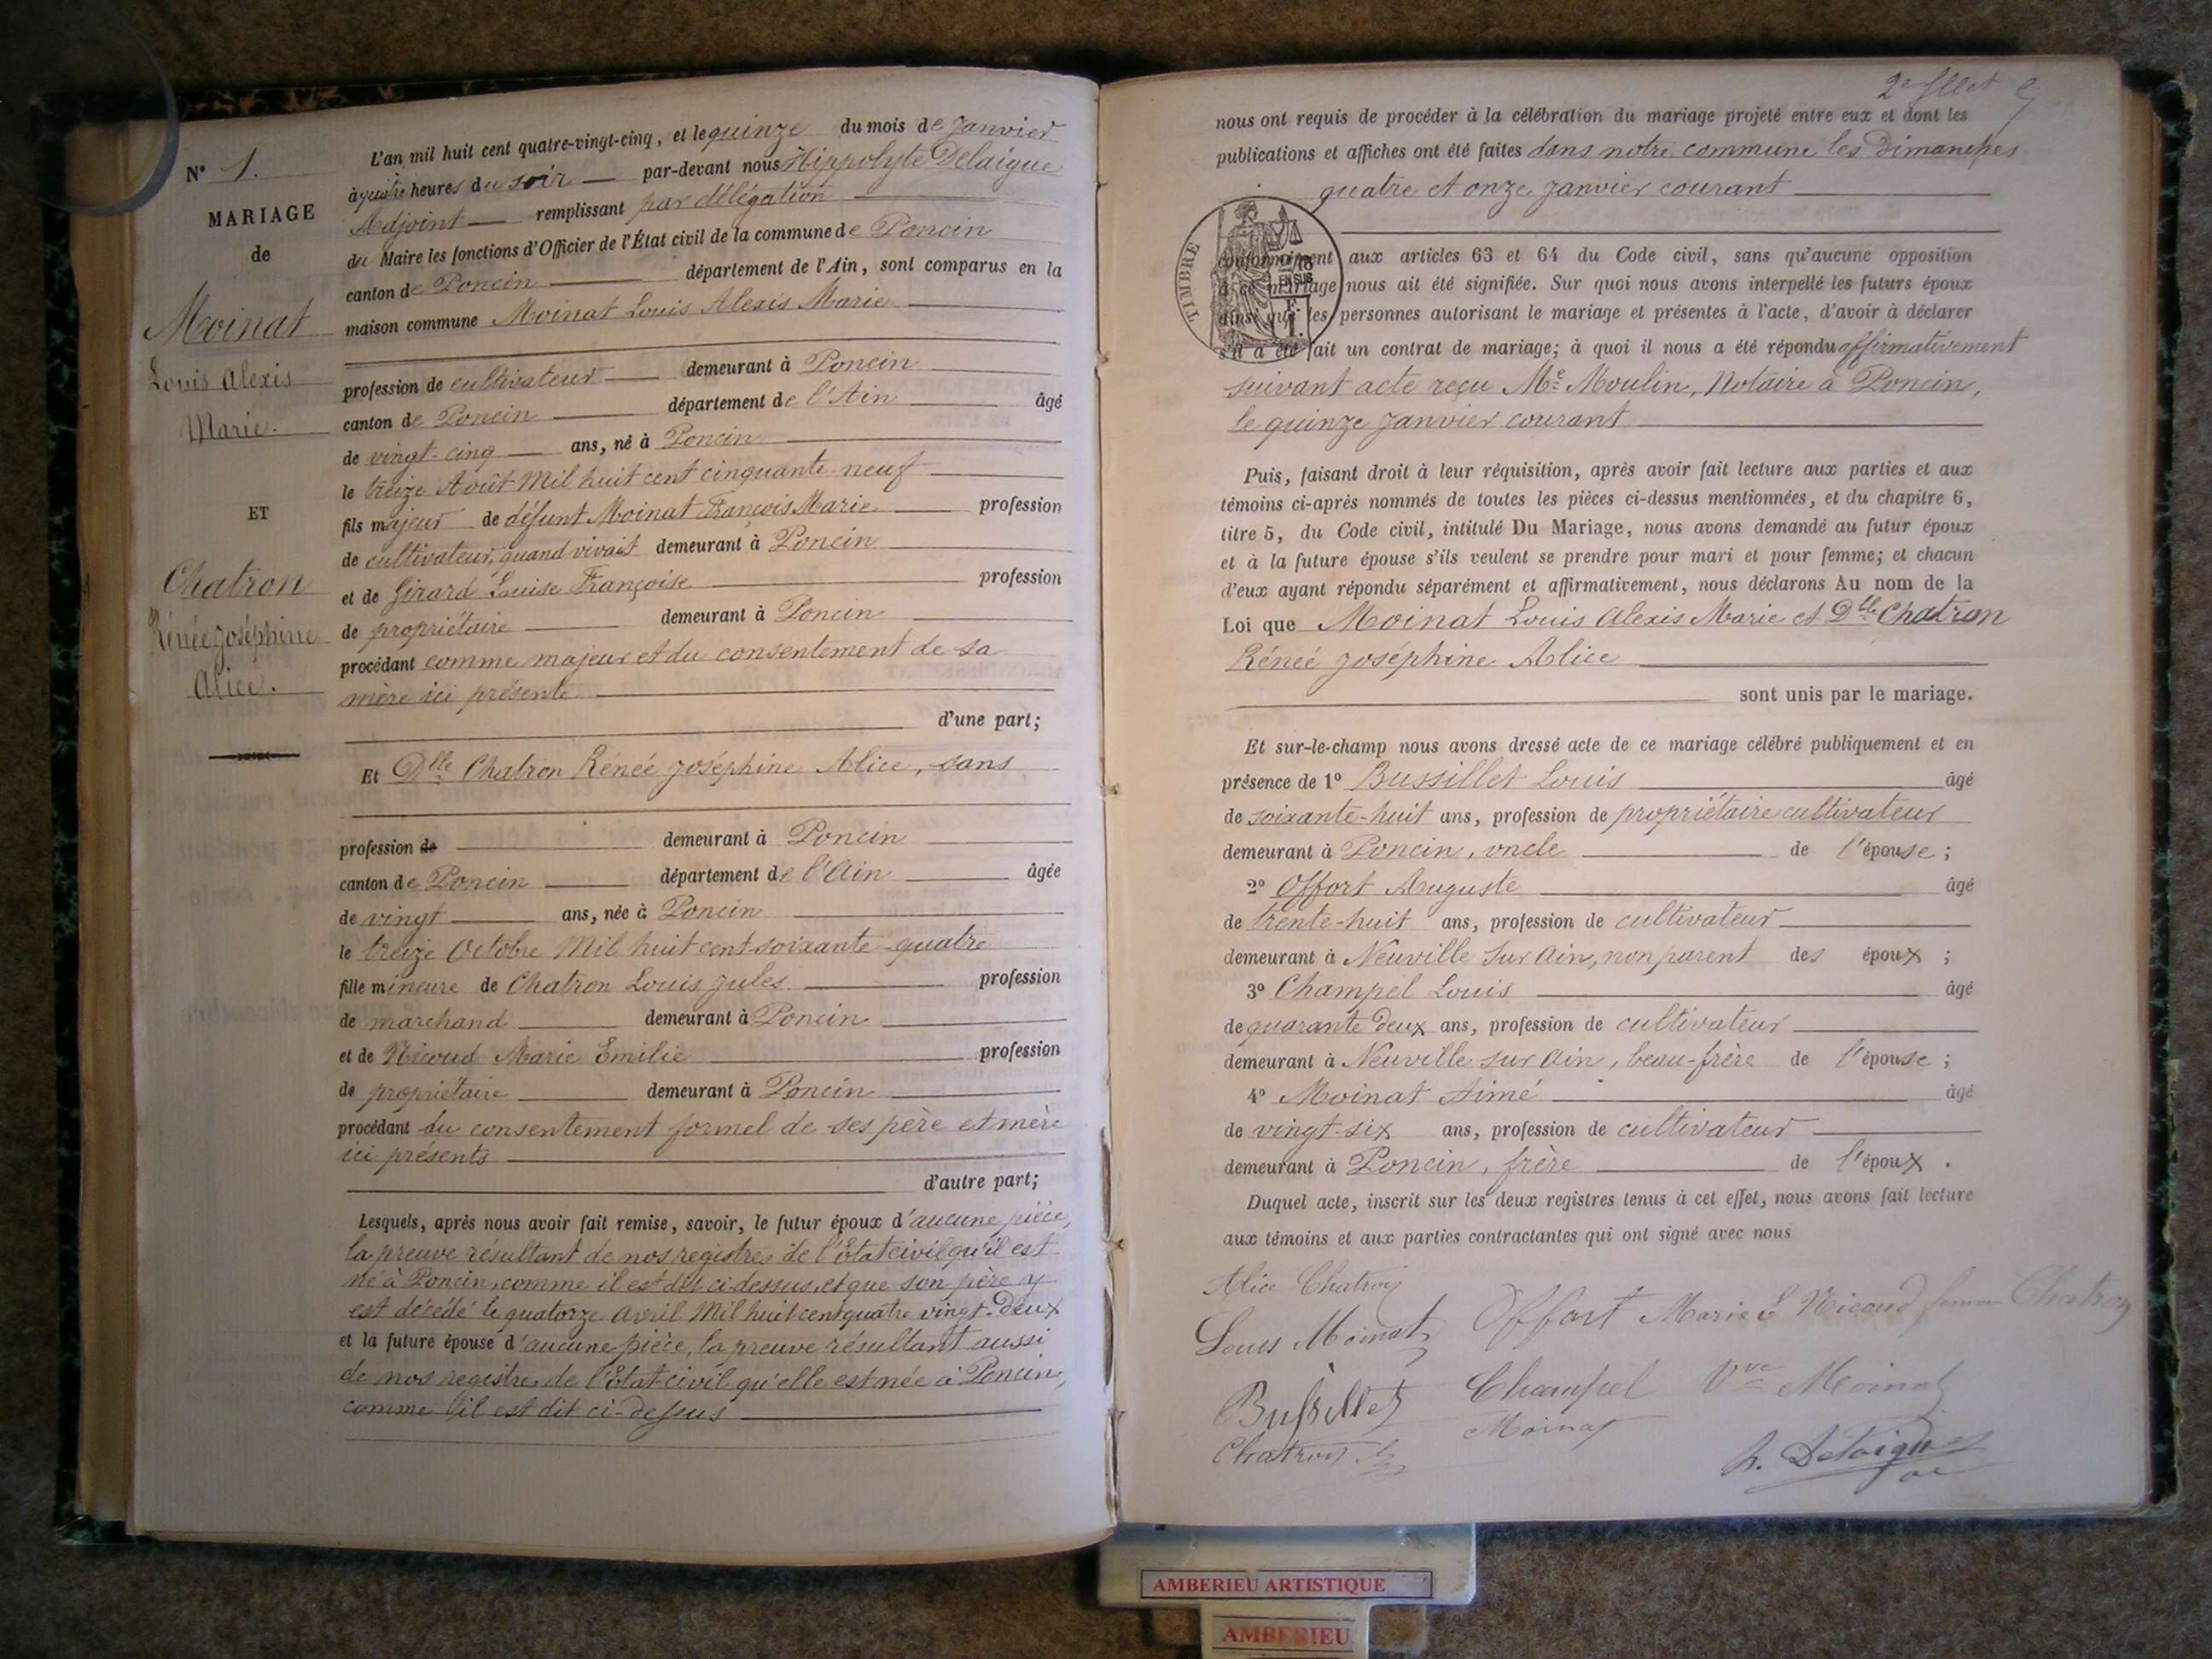 N° 1.
MARIAGE
de
Moinat
Louis Alexis
Marie.
ET
Chatron
Rénée Joséphine
Alice.
L'an mil huit cent quatre-vingt-cinq, et le quinze du mois de Janvier
à quatre heures du soir par-devant nous Hippolyte Delaigue
Adjoint remplissant par délégation
du Maire les fonctions d'Officier de l'État civil de la commune de Poncin
canton de Poncin département de l'Ain, sont comparus en la
maison commune Moinat Louis Alexis Marie
profession de cultivateur demeurant à Poncin
canton de Poncin département de l'Ain âgé
de vingt-cinq ans, né à Poncin
le treize Août Mil huit cent cinquante-neuf
fils majeur de défunt Moinat François Marie profession
de cultivateur, quand vivait demeurant à Poncin
et de Girard Louise Françoise profession
de propriétaire demeurant à Poncin
procédant comme majeur et du consentement de sa
mère ici présente
d'une part;
Et Dlle Chatron Rénée Joséphine Alice, sans
profession de demeurant à Poncin
canton de Poncin département de l'Ain âgée
de vingt ans, née à Poncin
le treize Octobre Mil huit cent soixante-quatre
fille mineure de Chatron Louis Jules profession
de marchand demeurant à Poncin
et de Nicoud Marie Emilie profession
de propriétaire demeurant à Poncin
procédant du consentement formel de ses père et mère
ici présents
d'autre part;
Lesquels, après nous avoir fait remise, savoir, le futur époux d'aucune pièce,
la preuve résultant de nos registres de l'État civil qu'il est
né à Poncin, comme il est dit ci-dessus, et que son père y
est décédé le quatorze Avril Mil huit cent quatre vingt-deux
et la future épouse d'aucune pièce, la preuve résultant aussi
de nos registres de l'État civil qu'elle est née à Poncin,
comme il est dit ci-dessus
2e fllet
nous ont requis de procéder à la célébration du mariage projeté entre eux et dont les
publications et affiches ont été faites dans notre commune les Dimanches
quatre et onze Janvier courant
TIMBRE
EN SUS
conformément aux articles 63 et 64 du Code civil, sans qu'aucune opposition
à ce mariage nous ait été signifiée. Sur quoi nous avons interpellé les futurs époux
ainsi que les personnes autorisant le mariage et présentes à l'acte, d'avoir à déclarer
s'il a été fait un contrat de mariage; à quoi il nous a été répondu affirmativement
suivant acte reçu Me Moulin, Notaire à Poncin,
le quinze Janvier courant
Puis, faisant droit à leur réquisition, après avoir fait lecture aux parties et aux
témoins ci-après nommés de toutes les pièces ci-dessus mentionnées, et du chapitre 6,
titre 5, du Code civil, intitulé Du Mariage, nous avons demandé au futur époux
et à la future épouse s'ils veulent se prendre pour mari et pour femme; et chacun
d'eux ayant répondu séparément et affirmativement, nous déclarons Au nom de la
Loi que Moinat Louis Alexis Marie et Dlle Chatron
Rénée Joséphine Alice
sont unis par le mariage.
Et sur-le-champ nous avons dressé acte de ce mariage célébré publiquement et en
présence de 1° Bussillet Louis âgé
de soixante-huit ans, profession de propriétaire cultivateur
demeurant à Poncin, oncle de l'épouse;
2° Offort Auguste âgé
de trente-huit ans, profession de cultivateur
demeurant à Neuville sur Ain, non parent des époux;
3° Champel Louis âgé
de quarante deux ans, profession de cultivateur
demeurant à Neuville sur Ain, beau-frère de l'épouse;
4° Moinat Aimé âgé
de vingt-six ans, profession de cultivateur
demeurant à Poncin, frère de l'époux.
Duquel acte, inscrit sur les deux registres tenus à cet effet, nous avons fait lecture
aux témoins et aux parties contractantes qui ont signé avec nous
Alice Chatron
Louis Moinat Offort Marie E Nicoud femme Chatron
Bussillet Champel Vve Moinat
Chatron Moinat
h. Delaigue
AMBERIEU ARTISTIQUE
AMBERIEU